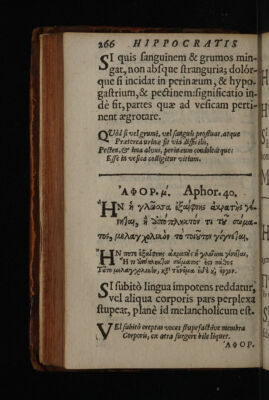 266 HIPPOCRATIS
SI quis sanguinem & grumos min-
gat, non absque stranguria; dolór-
que si incidat in perinæum, & hypo-
gastrium, & pectinem: significatio in-
dè sit, partes quæ ad vesicam perti-
nent ægrotare.
QUòd si vel grumi, vel sanguis profluat, atque
Præterea urinæ sit via difficilis,
Pecten, & ima alvus, perinæum condoleátque:
Esse in vesica colligitur vitium.
ἈΦΟΡ. μ. Aphor. 40.
ἪΝ ἡ γλῶσσα ἐξαίφνης ἀκρατὴς γέ-
νηται, ἢ ἀπόπληκτόν τι τοῦ σώμα-
τος, μελαγχολικὸν τὸ τοιοῦτον γίνεται.
SI subitò lingua impotens reddatur,
vel aliqua corporis pars perplexa
stupeat, planè id melancholicum est.
VEl subitò ereptas voces stupefactáve membra
Corporis, ex atra surgere bile liquet.
ἈΦΟΡ.